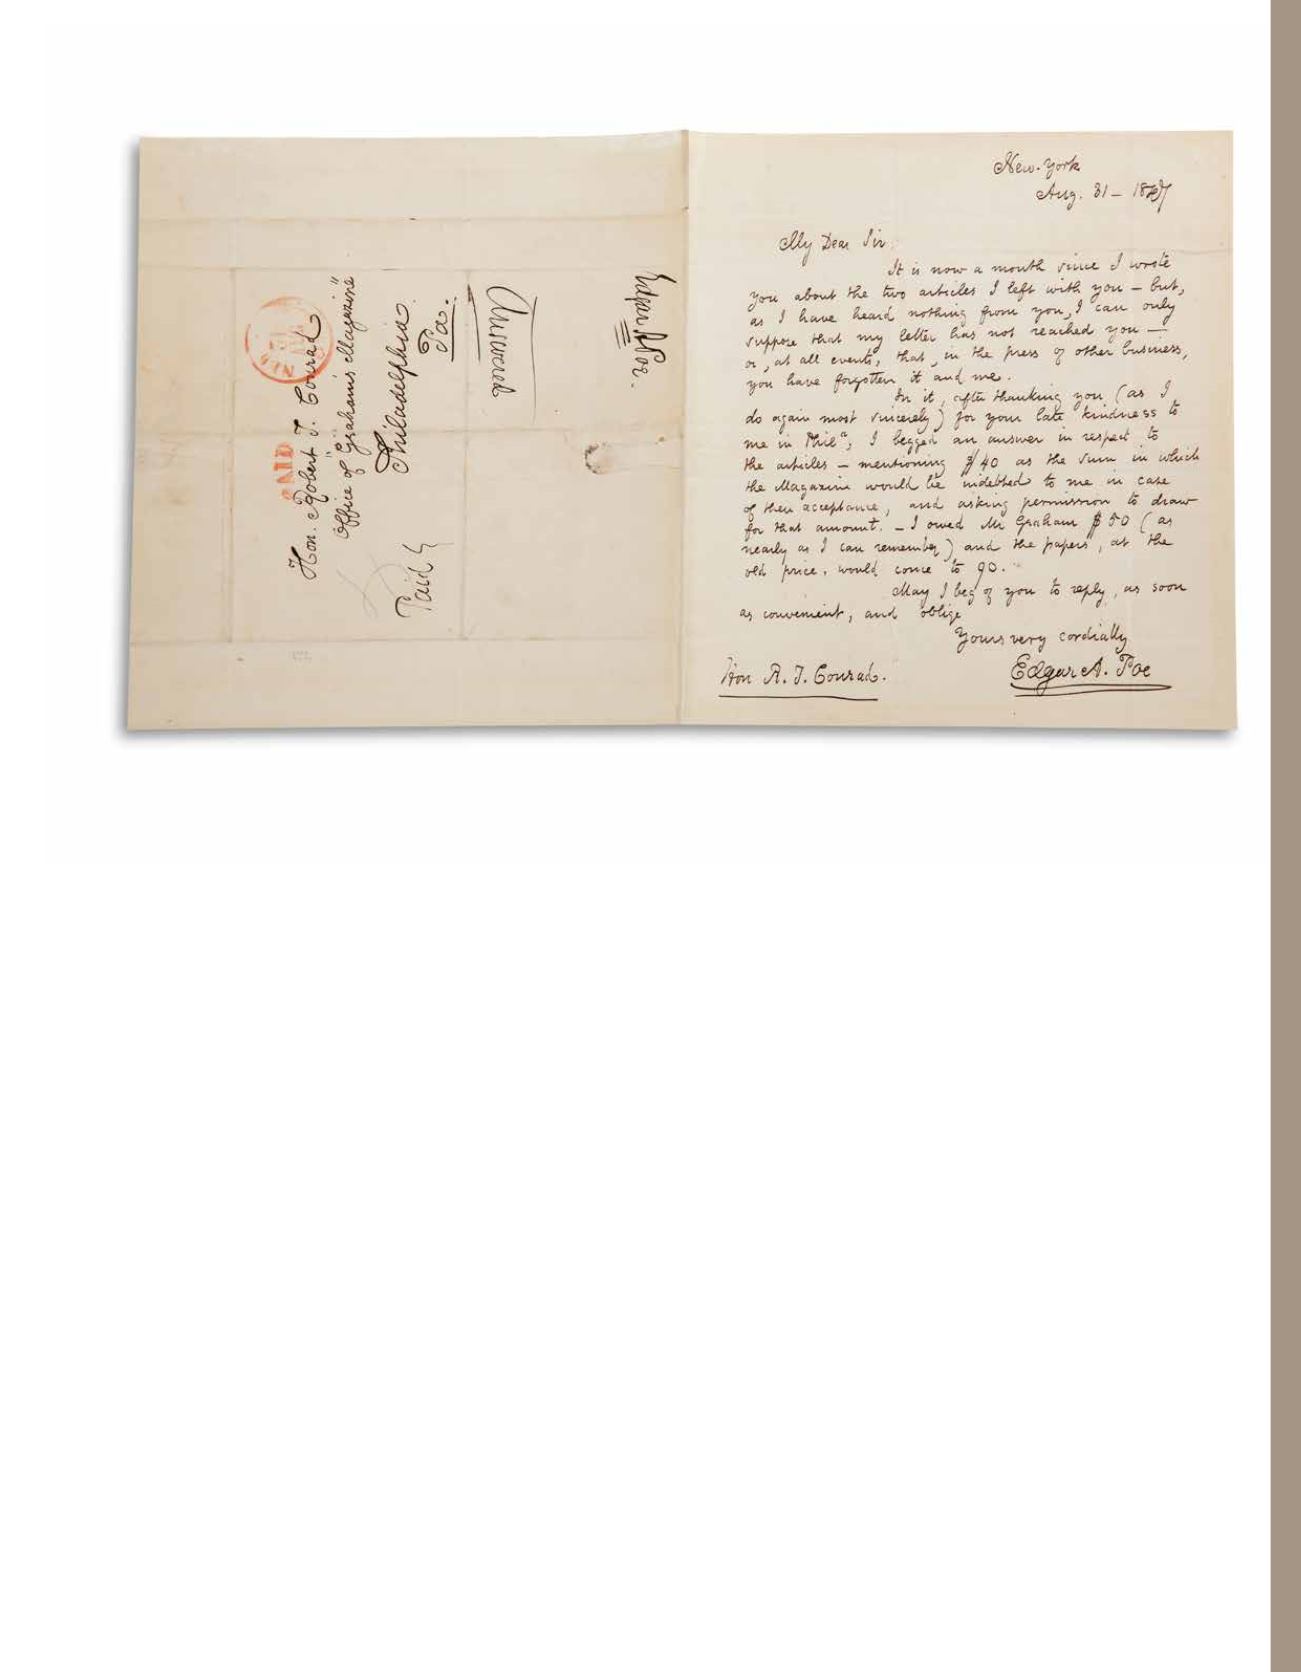 New-York
Aug. 31 – 1847
My Dear Sir,
It is now a month since I wrote
you about the two articles I left with you – but,
as I have heard nothing from you, I can only
suppose that my letter has not reached you —
or, at all events, that, in the press of other business,
you have forgotten it and me.
In it, after thanking you (as I
do again most sincerely) for your late kindness to
me in Phila, I begged an answer in respect to
the articles – mentioning $40 as the sum in which
the Magazine would be indebted to me in case
of their acceptance, and asking permission to draw
for that amount. – I owed Mr Graham $50 (as
nearly as I can remember) and the papers, at the
old price, would come to 90.
May I beg of you to reply, as soon
as convenient, and oblige
Yours very cordially
Edgar A. Poe
Hon R. T. Conrad.
Hon. Robert T. Conrad
Office of "Graham's Magazine"
Philadelphia.
Pa.
Paid
PAID
Answered
Edgar A Poe.